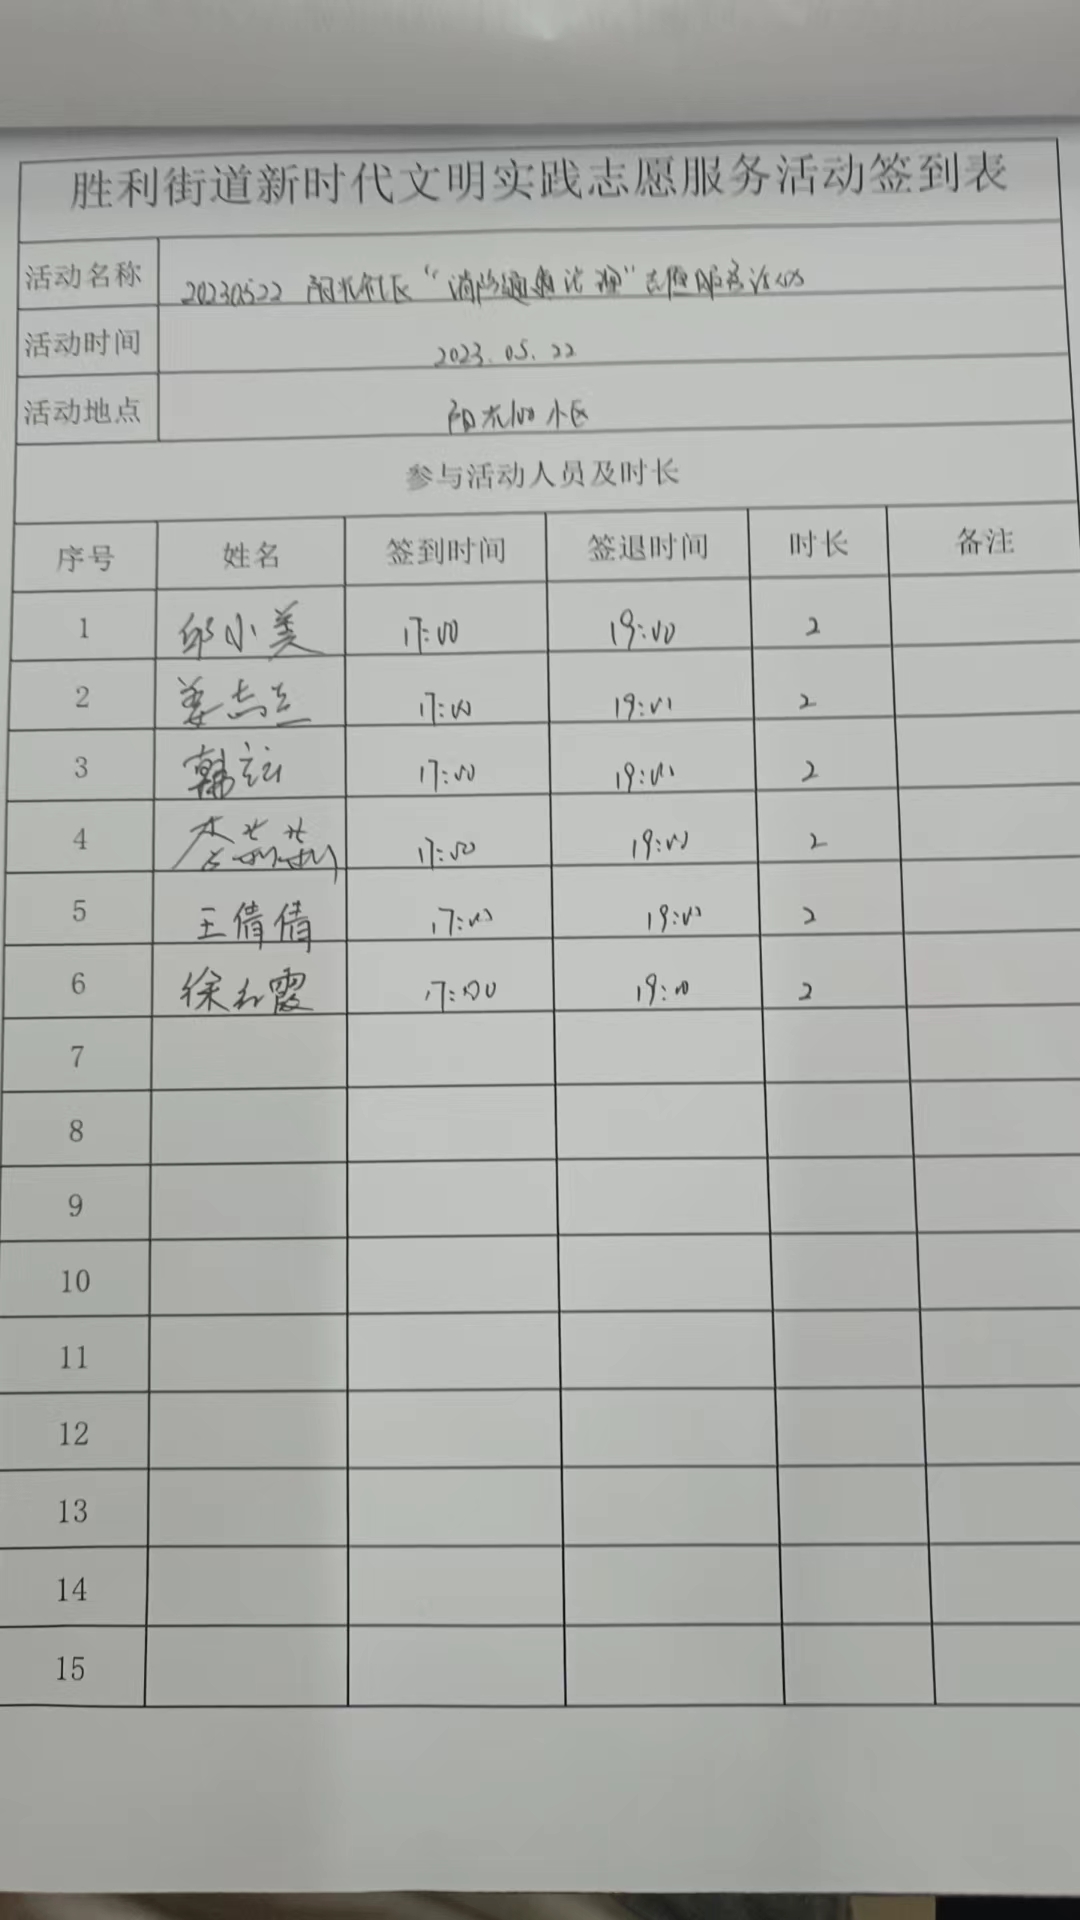 胜利街道新时代文明实践志愿服务活动签到表
活动名称 20230522 阳光社区“消防通道治理”志愿服务活动
活动时间 2023.05.22
活动地点 阳光100小区
参与活动人员及时长
序号 姓名 签到时间 签退时间 时长 备注
1 邱小美 17:00 19:00 2
2 17:00 19:00 2
3 韩 17:00 19:00 2
4 李莉莉 17:00 19:00 2
5 王倩倩 17:00 19:00 2
6 徐红霞 17:00 19:00 2
7
8
9
10
11
12
13
14
15